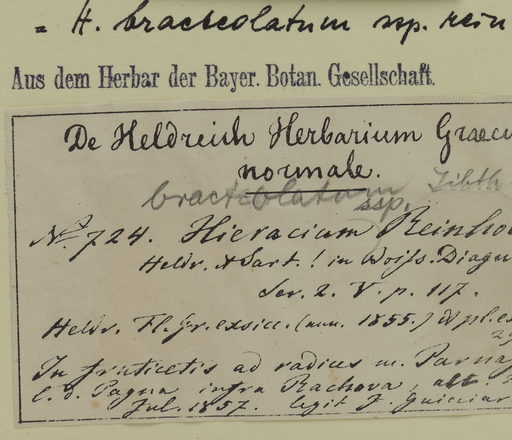 = H. bracteolatum ssp. rein
Aus dem Herbar der Bayer. Botan. Gesellschaft.
De Heldreich Herbarium Graecu
normale.
bracteolatum Sibth
ssp.
No 724. Hieracium Reinho
Heldr. & Sart.! in Boiss. Diagn
Ser. 2. V. p. 117.
Heldr. Fl. Gr. exsicc. (ann. 1855.) & pl. ex
In fruticetis ad radices m. Parna
infra Rachova, alt.
Jul. 1857. legit J. Guicciar